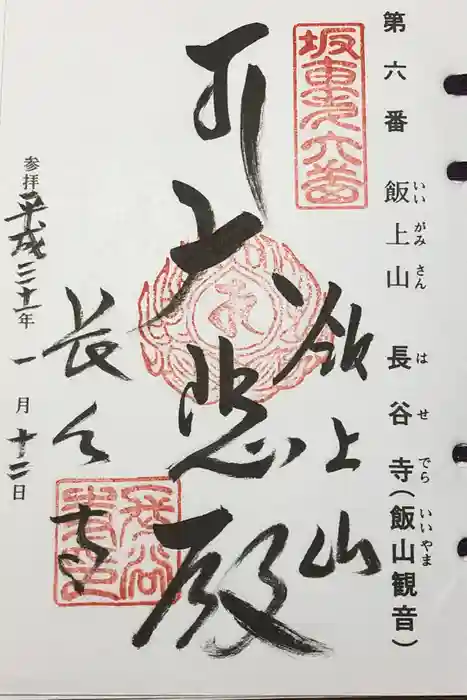 第六番 飯上山 長谷寺(飯山観音)
いいがみさん はせでら いいやま
坂東第六番
飯上山
大悲殿
長谷寺
参拝平成三十一年一月十二日